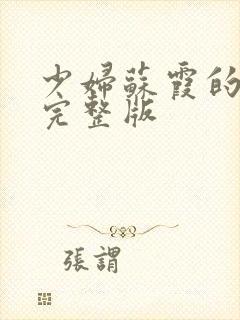 少婦蘇霞的
完整版
張謂